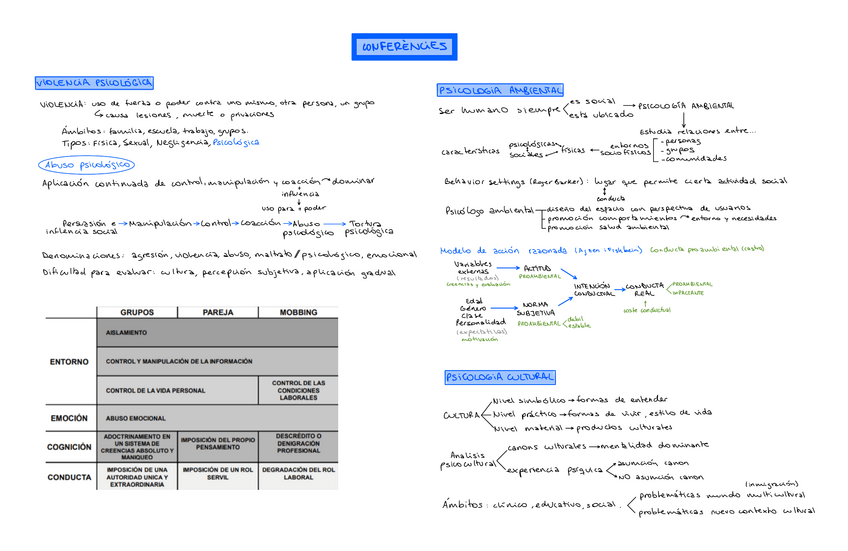 CONFERÈNCIES
VIOLENCIA PSICOLÓGICA
VIOLENCIA: uso de fuerza o poder contra uno mismo, otra persona, un grupo
↳ causa lesiones, muerte o privaciones
Ámbitos: familia, escuela, trabajo, grupos.
Tipos: Física, Sexual, Negligencia, Psicológica
Abuso psicológico
Aplicación continuada de control, manipulación y coacción → dominar
influencia
uso para + poder
Persuasión e influencia social → Manipulación → Control → Coacción → Abuso psicológico → Tortura psicológica
Denominaciones: agresión, violencia, abuso, maltrato / psicológico, emocional
Dificultad para evaluar: cultura, percepción subjetiva, aplicación gradual
GRUPOS PAREJA MOBBING
ENTORNO
AISLAMIENTO
CONTROL Y MANIPULACIÓN DE LA INFORMACIÓN
CONTROL DE LA VIDA PERSONAL
CONTROL DE LAS CONDICIONES LABORALES
EMOCIÓN ABUSO EMOCIONAL
COGNICIÓN
ADOCTRINAMIENTO EN UN SISTEMA DE CREENCIAS ABSOLUTO Y MANIQUEO
IMPOSICIÓN DEL PROPIO PENSAMIENTO
DESCRÉDITO O DENIGRACIÓN PROFESIONAL
CONDUCTA
IMPOSICIÓN DE UNA AUTORIDAD UNICA Y EXTRAORDINARIA
IMPOSICIÓN DE UN ROL SERVIL
DEGRADACIÓN DEL ROL LABORAL
PSICOLOGIA AMBIENTAL
Ser humano siempre
es social
esta ubicado
→ PSICOLOGÍA AMBIENTAL
Estudia relaciones entre...
características
psicológicas
sociales
físicas
← entornos sociofísicos
- personas
- grupos
- comunidades
Behavior settings (Roger Barker): lugar que permite cierta actividad social
conducta
Psicólogo ambiental
diseño del espacio con perspectiva de usuarios
promoción comportamientos → entorno y necesidades
promoción salud ambiental
Modelo de acción razonada (Ajzen i Fishbein) Conducta proambiental (castro)
Variables externas
(resultados)
creencias y evaluación
→ ACTITUD
PROAMBIENTAL
Edad
Género
Clase
Personalidad
(expectativas)
motivación
→ NORMA SUBJETIVA
PROAMBIENTAL
debil
estable
INTENCIÓN CONDUCTUAL
→ CONDUCTA REAL
PROAMBIENTAL
IMPACTANTE
coste conductual
PSICOLOGIA CULTURAL
CULTURA
Nivel simbólico → formas de entender
Nivel práctico → formas de vivir, estilo de vida
Nivel material → productos culturales
Analisis psicocultural
canons culturales → mentalidad dominante
experiencia psíquica
asunción canon
NO asunción canon
(inmigración)
Ámbitos: clínico, educativo, social.
problemáticas mundo multicultural
problemáticas nuevo contexto cultural